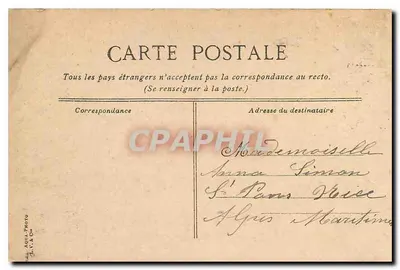 CARTE POSTALE
Tous les pays étrangers n'acceptent pas la correspondance au recto.
(Se renseigner à la poste.)
Correspondance
Adresse du destinataire
CPAPHIL
Mademoiselle
Anna Simon
St Pons Nice
Alpes Maritime
Aqua-Photo
L. V. & Cie